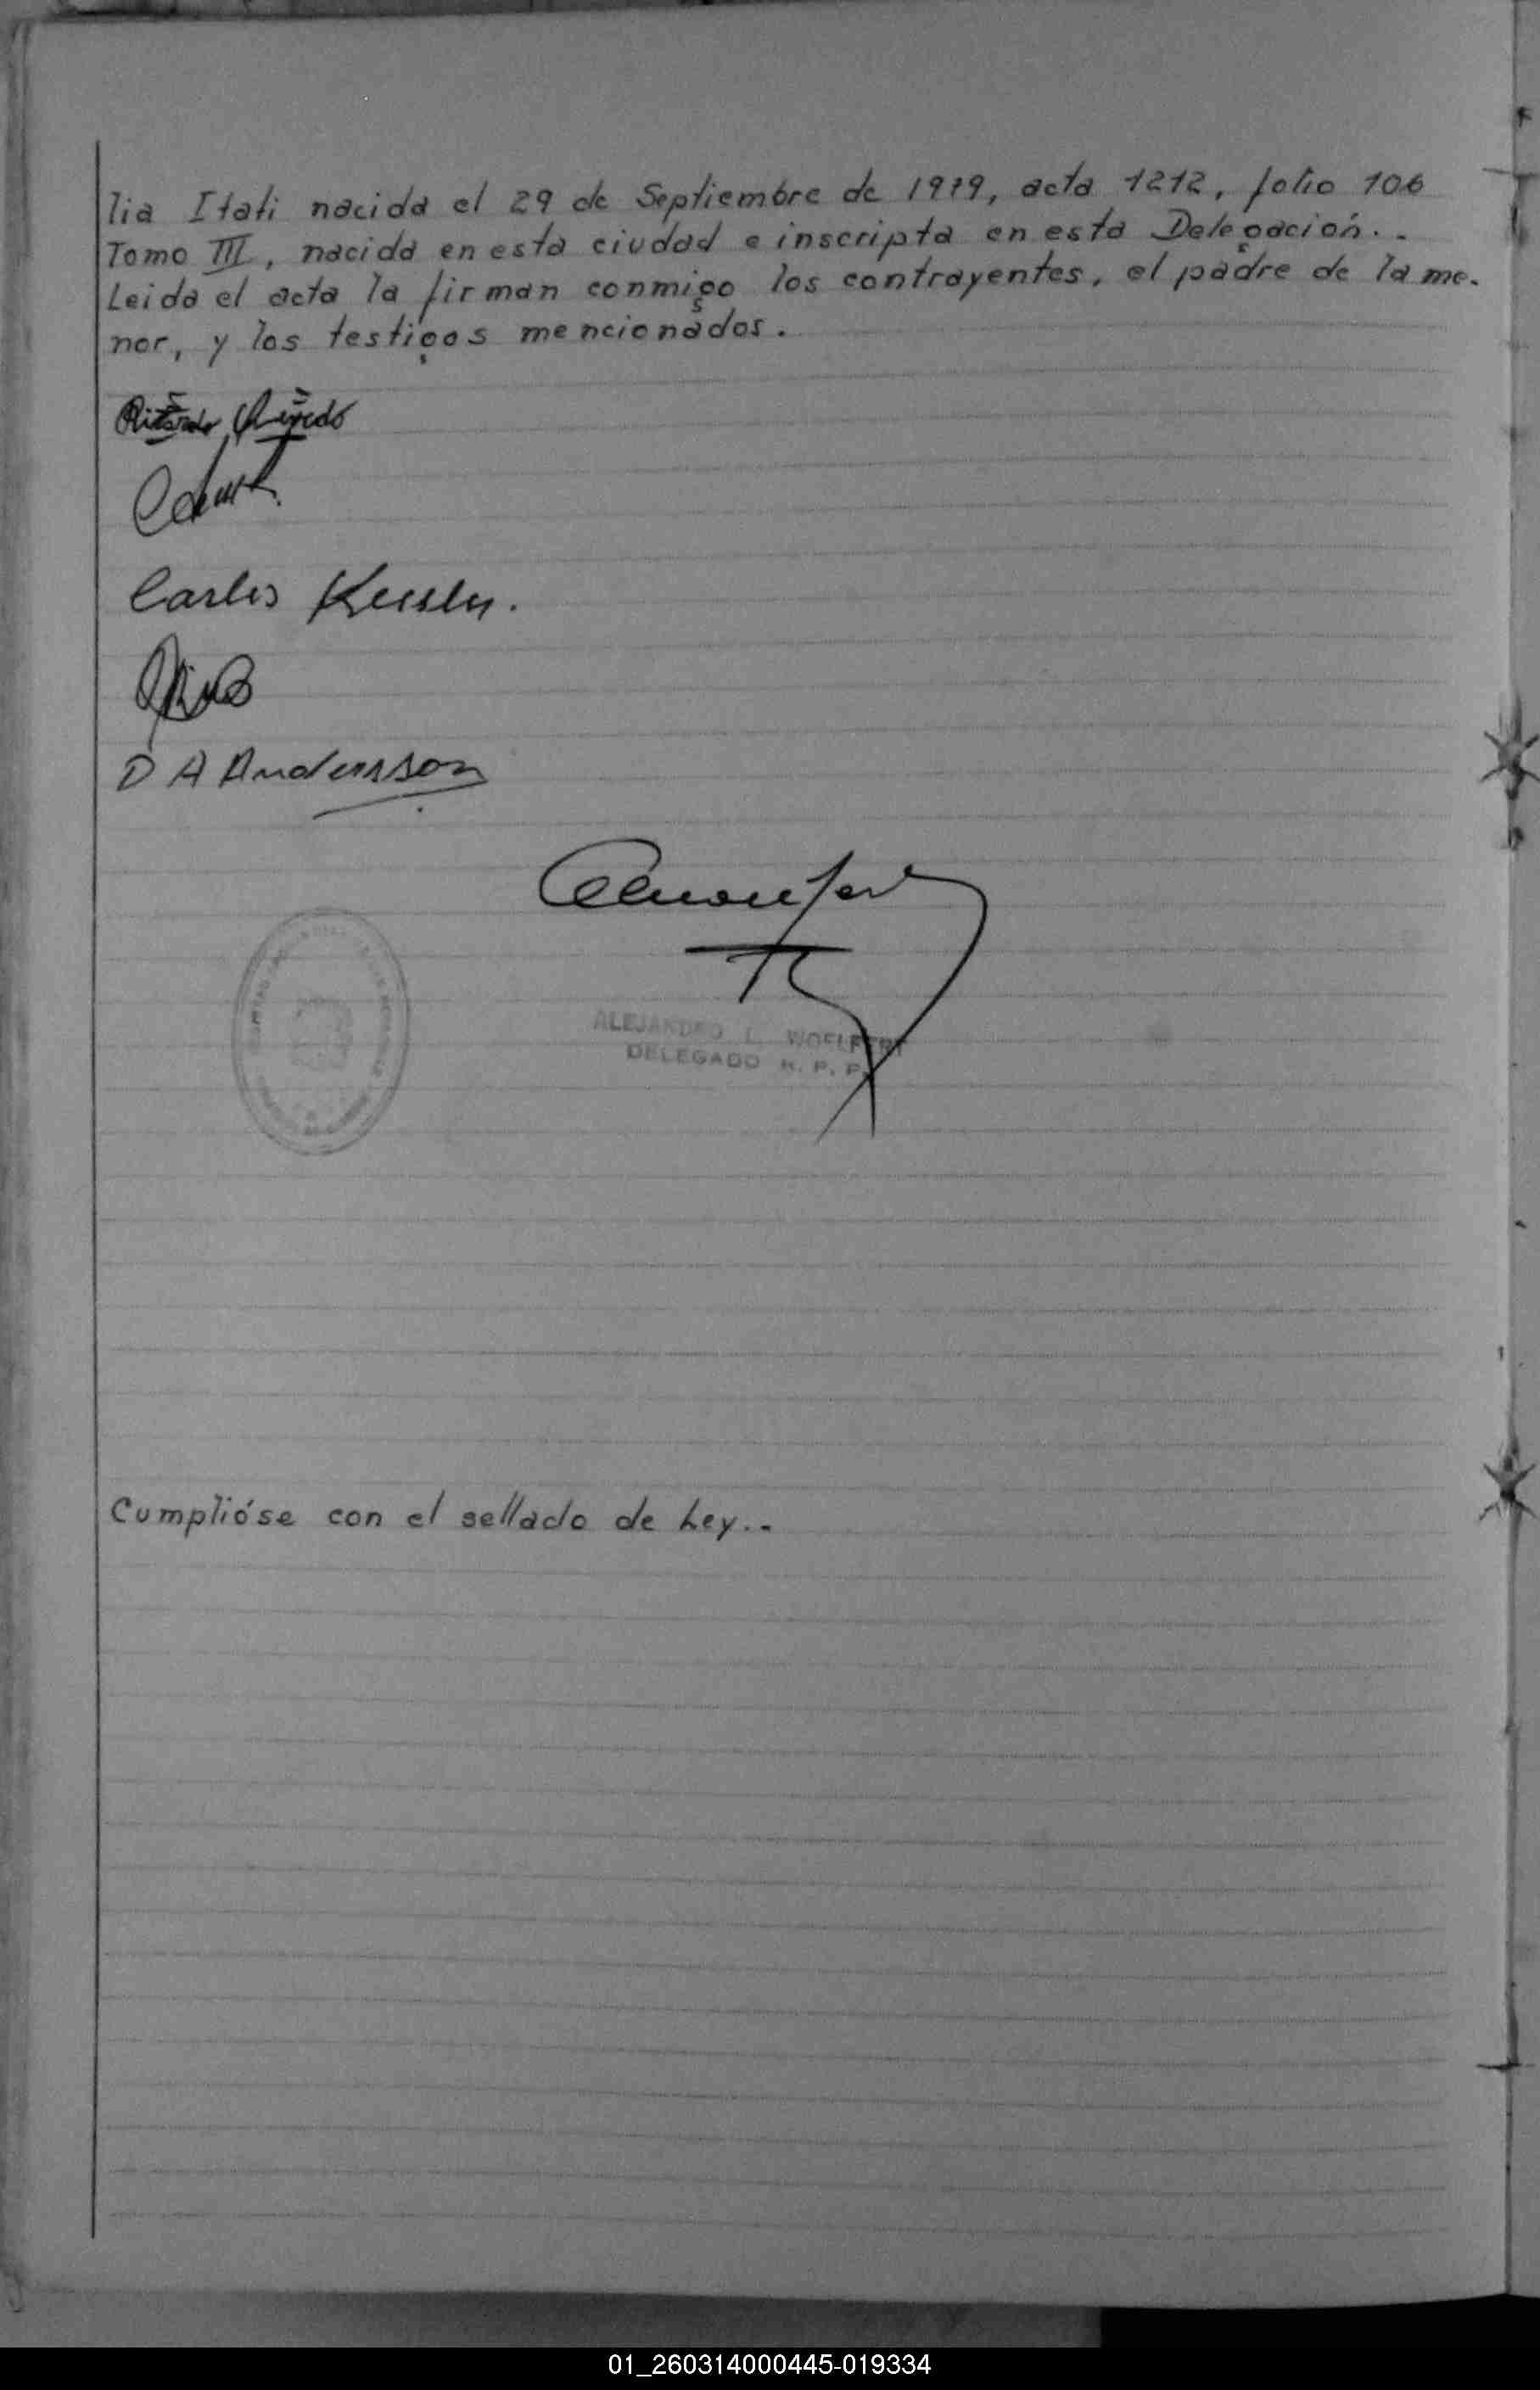 lia Itati nacida el 29 de Septiembre de 1979, acta 1212, folio 106
Tomo III, nacida en esta ciudad e inscripta en esta Delegación..
Leida el acta la firman conmigo los contrayentes, el padre de la me-
nor, y los testigos mencionados.
Carlos
D A Andersson
ALEJANDRO L. WOELFERT
DELEGADO R. P. P.
Cumplióse con el sellado de Ley..
01_260314000445-019334